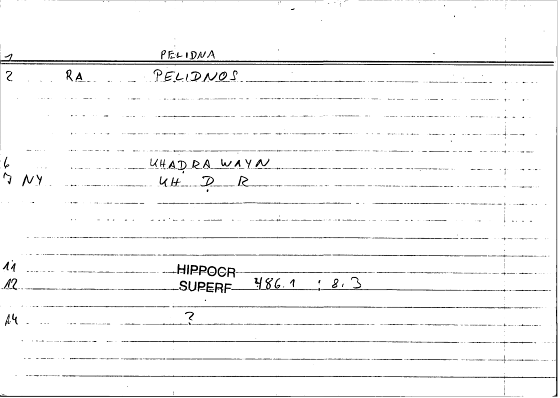 1 PELIDNA
2 RA PELIDNOS
6 ḪHADṚA WAYN
7 NY ḪH Ḍ R
11 HIPPOCR
12 SUPERF 486.1 : 8.3
14 ?